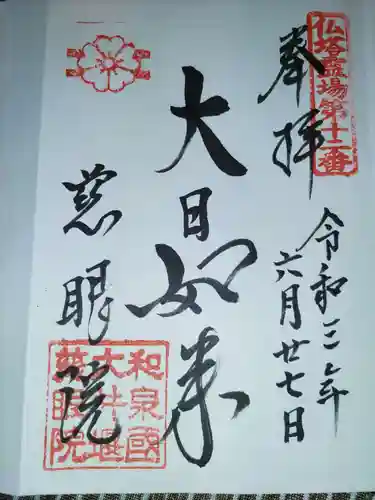 奉拝
仏塔霊場第十二番
令和三年
六月廿七日
大日如来
慈眼院
和泉國
大井堰
慈眼院